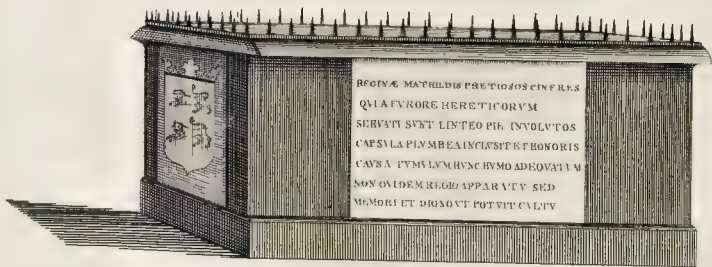 REGINÆ MATHILDIS PRETIOSOS CINERES
QVI A FVRORE HERETICORVM
SERVATI SVNT LINTEO PIE INVOLVTOS
CAPSVLA PLVMBEA INCLVSIT ET HONORIS
CAVSA TVMVLVM HVNC HVMO ADEQVATVM
NON QVIDEM REGIO APPARATV SED
MEMORI ET DIGNO VT POTVIT CVLTV